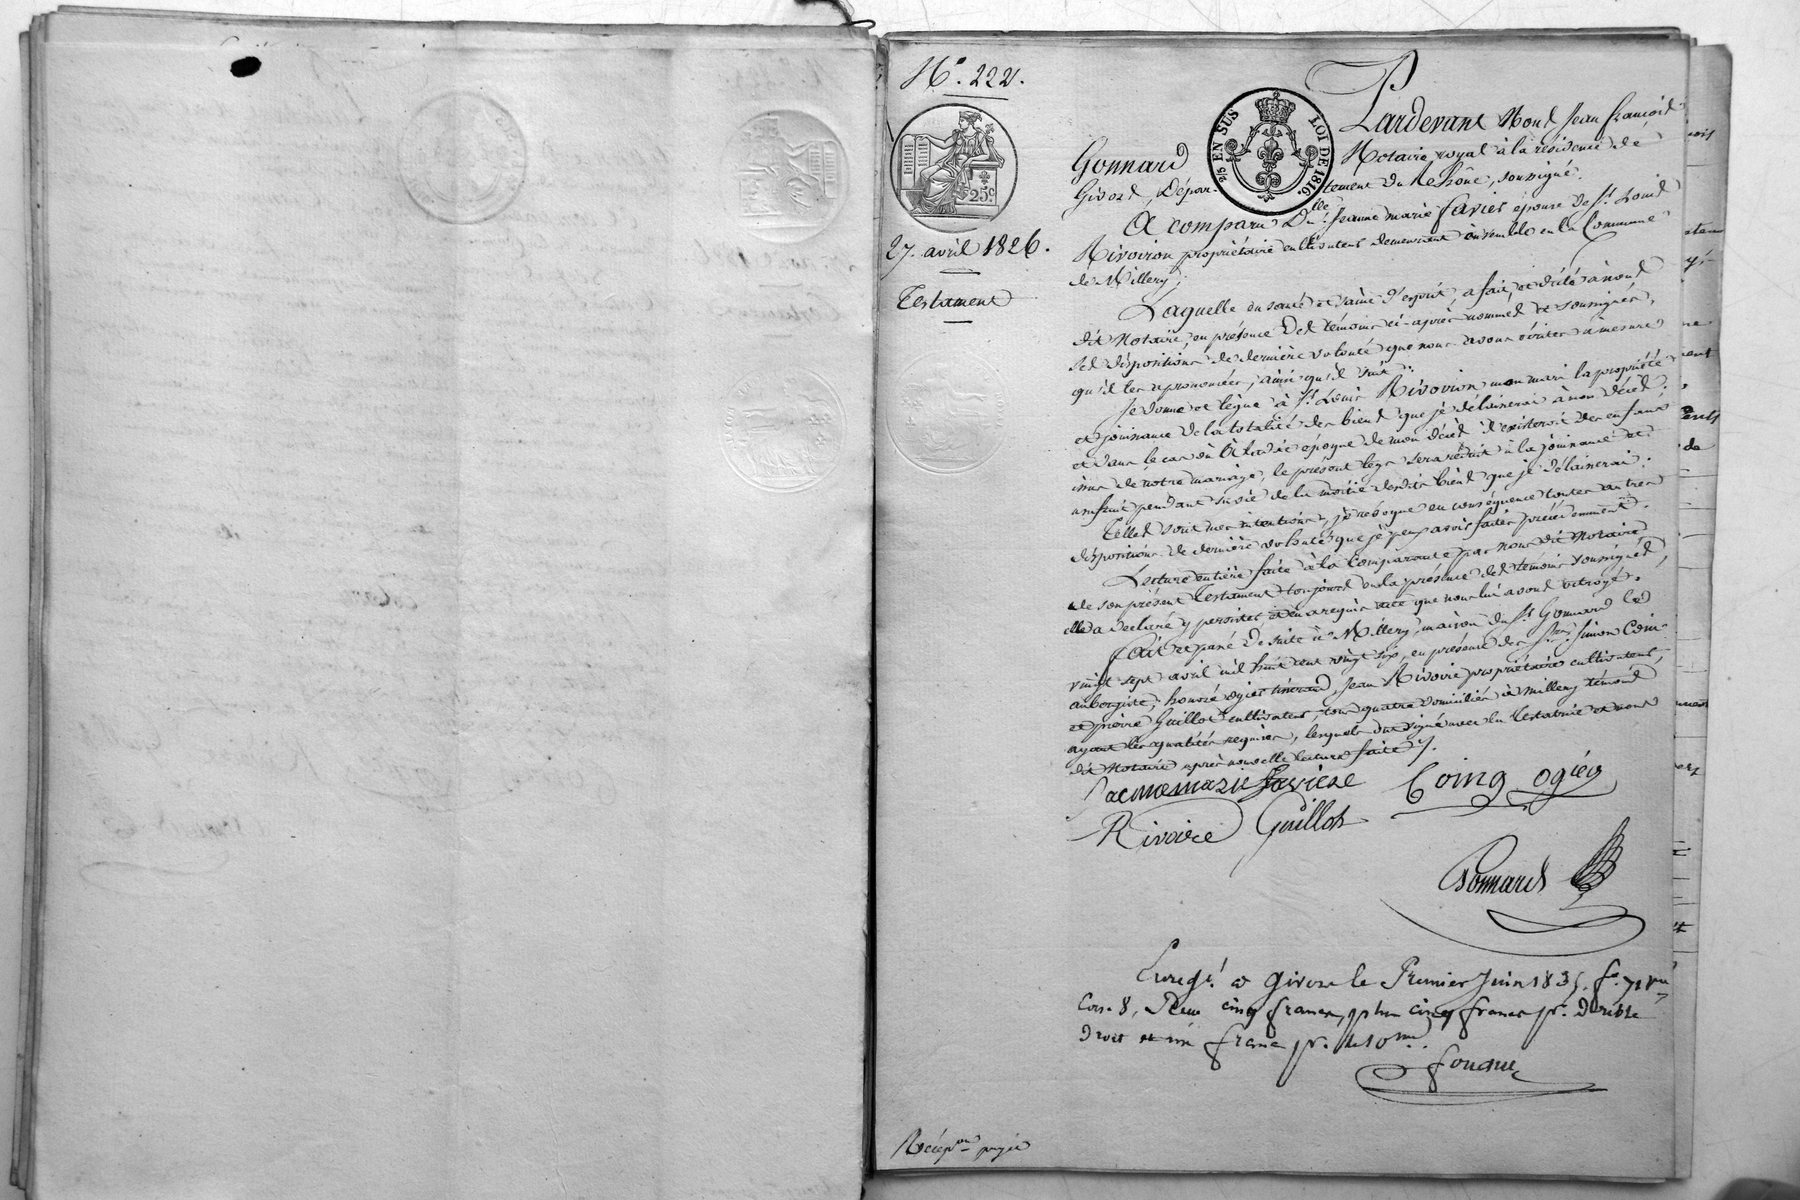 N.° 222.
25 EN SUS
LOI DE 1816.
25.c
27. avril 1826.
Testament
Pardevant Nous Jean françois
Gonnard Notaire royal à la résidence de
Givors, Dépar-tement du Rhône, soussigné.
A comparu D.lle Jeanne marie favier épouse de S.r Louis
Rivoiron propriétaire cultivateur demeurant ensemble en la Commune
de Millery;
Laquelle en santé et saine d'esprit, a fait, et dicté à nous
dit Notaire, en présence des témoins ci-après nommés et soussignés,
ses dispositions de dernière volonté que nous avons écrites à mesure
qu'il les a prononcées, ainsi qu'il suit:
Je donne et lègue à S.r Louis Rivoiron mon mari la propriété
et jouissance de la totalité des biens que je délaisserai à mon décès.
et dans le cas où à l'époque de mon décès il existeroit des enfans
issus de notre mariage, le présent legs sera réduit à la jouissance et
usufruit pendant sa vie de la moitié desdits biens que je délaisserai.
Telles sont mes intentions, je révoque en conséquence toutes autres
dispositions de dernière volonté que je peux avoir faites précédemment.
Lecture entière faite à la Comparante par nous dit Notaire
de son présent Testament toujours en la présence des témoins soussignés,
elle a déclaré y persister et en a requis acte que nous lui avons octroyé.
fait et passé de suite à Millery, maison du S.r Gonnard le
vingt sept avril mil huit cent vingt six, en présence des S.rs Simon Coin
aubergiste, honoré ogier tisserand, Jean Rivoire propriétaire cultivateur,
et pierre Guillot cultivateur, tous quatre domiciliés à millery témoins
ayant les qualités requises, lesquels ont signé avec la testatrice et nous
dit Notaire après nouvelle lecture faite.
Coing ogiey
Rivoire Guillot
Gonnard
Enreg.é à Givors le Premier Juin 1835. f.°
Case 8, Reçu cinq francs, plus cinq francs pr. double
droit et un franc pr. le 10.me
fouque
Récep.on payée